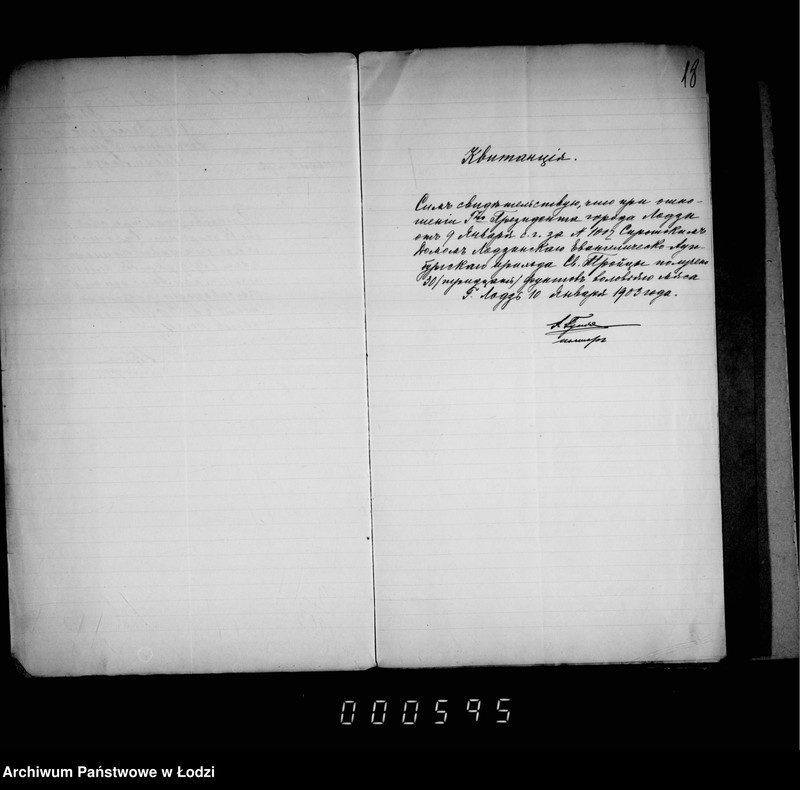 18
Квитанція.
Симъ свидѣтельствую, что при отно-
шеніи Г-на Президента города Лодзи
отъ 9 Января с.г. за № Сиротскимъ
Домомъ Лодзинскаго Евангелическо Ауг
бургскаго прихода Св. Тройцы получено
30 /тридцать/ фунтовъ воловьяго мяса
Г. Лодзь 10 Января 1903 года.
пасторъ
000595
Archiwum Państwowe w Łodzi